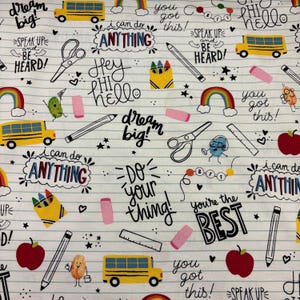 dream
big!
i can do
ANYTHING
you
got
this!
Hey!
Hi
hello
*SPEAK UP*
BE
HEARD!
*SPEAK UP*
BE
HEARD!
Hey
HI
hello
dream
big!
you
got
this!
i can do
ANYTHING
DO
your
thing!
i can do
ANYTHING
you're the
BEST
you
got
this!
you're the
BEST
*SPEAK UP
BE